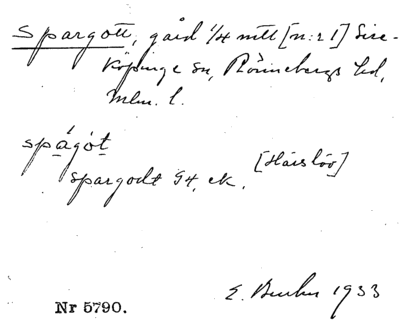 Spargott, gård 1/4 mtl [n:r 1] Sire-
köpinge sn, Rönnebergs hd,
Mlm. l.
spågót
spargodt G4, ek, [Häislöv]
E. 1933
Nr 5790.